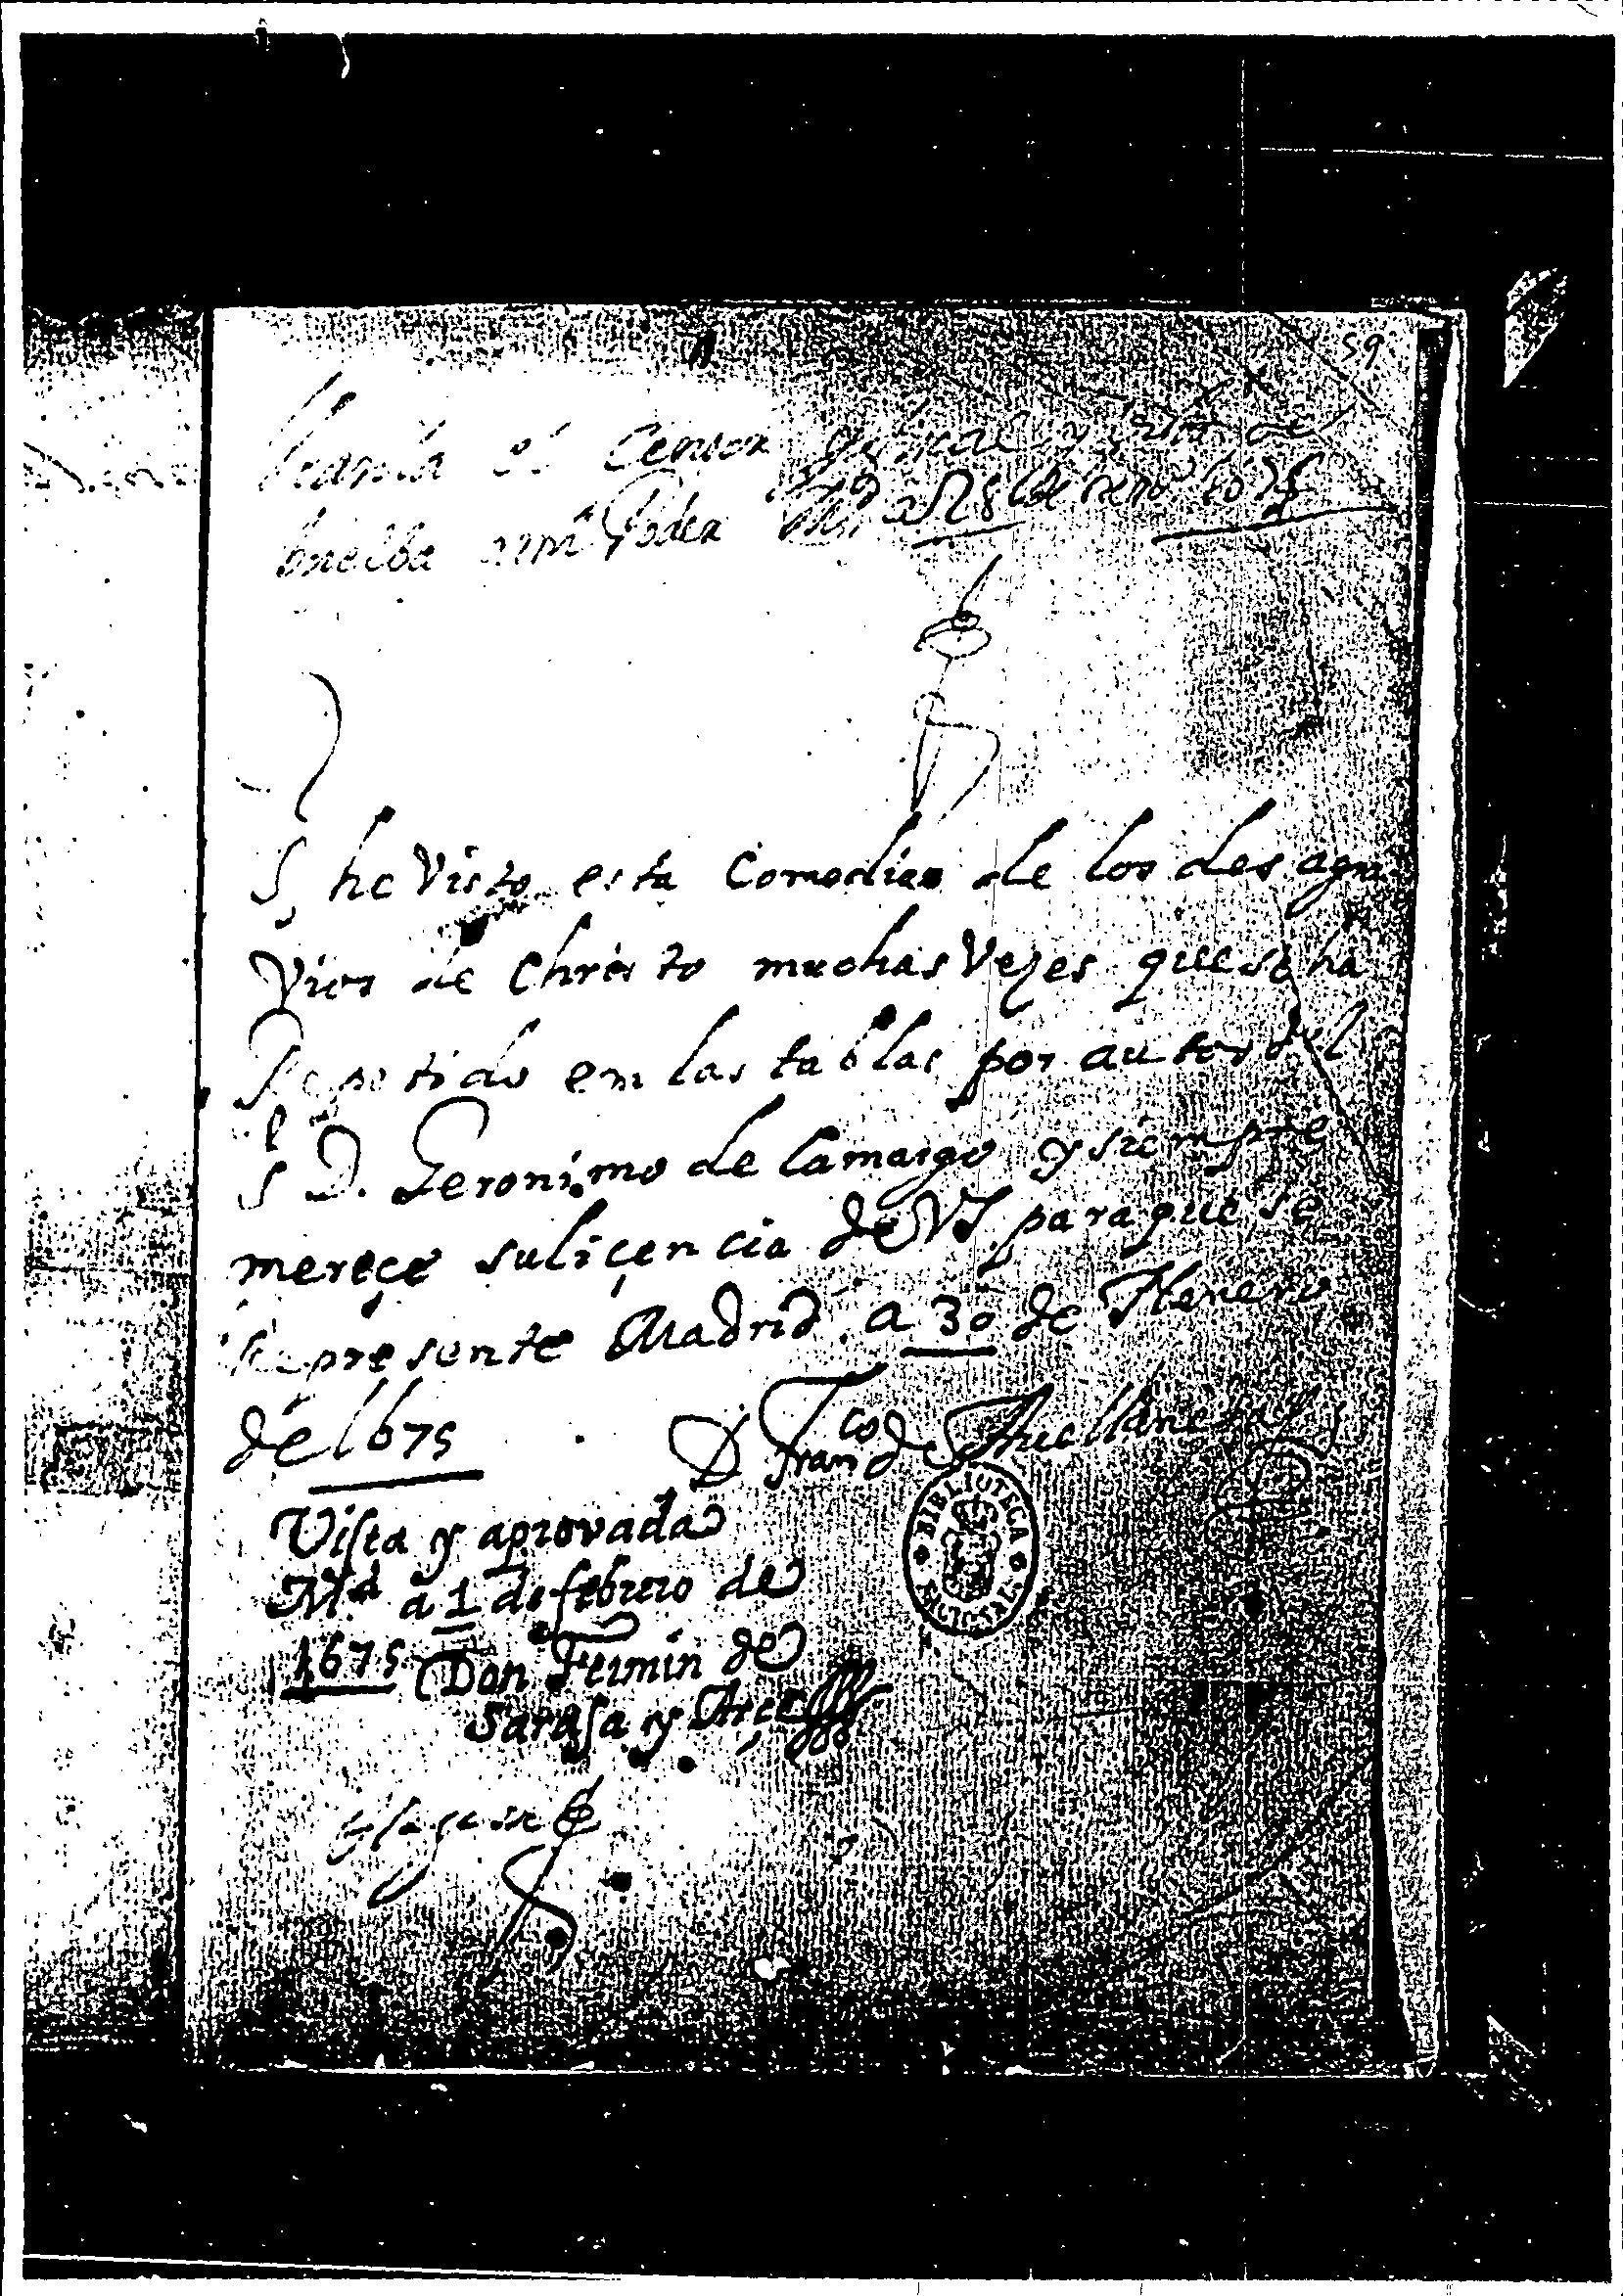 59
Veanla el Censor y fiscal y
buelba a mi Poder Md a 28 de enero 1675
Sr he Visto esta Comedia de los des agra
Vios de Christo muchas Vezes que se ha
Repetido en las tablas por autor del
Sr D. Geronimo de Camargo y siempre
mereçe su liçencia de VS para que se
Represente Madrid a 30 de Henero
de 1675 D. Franco de Auellaneda
Vista y aprovada
Md a 1 de febrero de
1675 Don Fermin de
Sarasa y Arçe
BIBLIOTECA NACIONAL